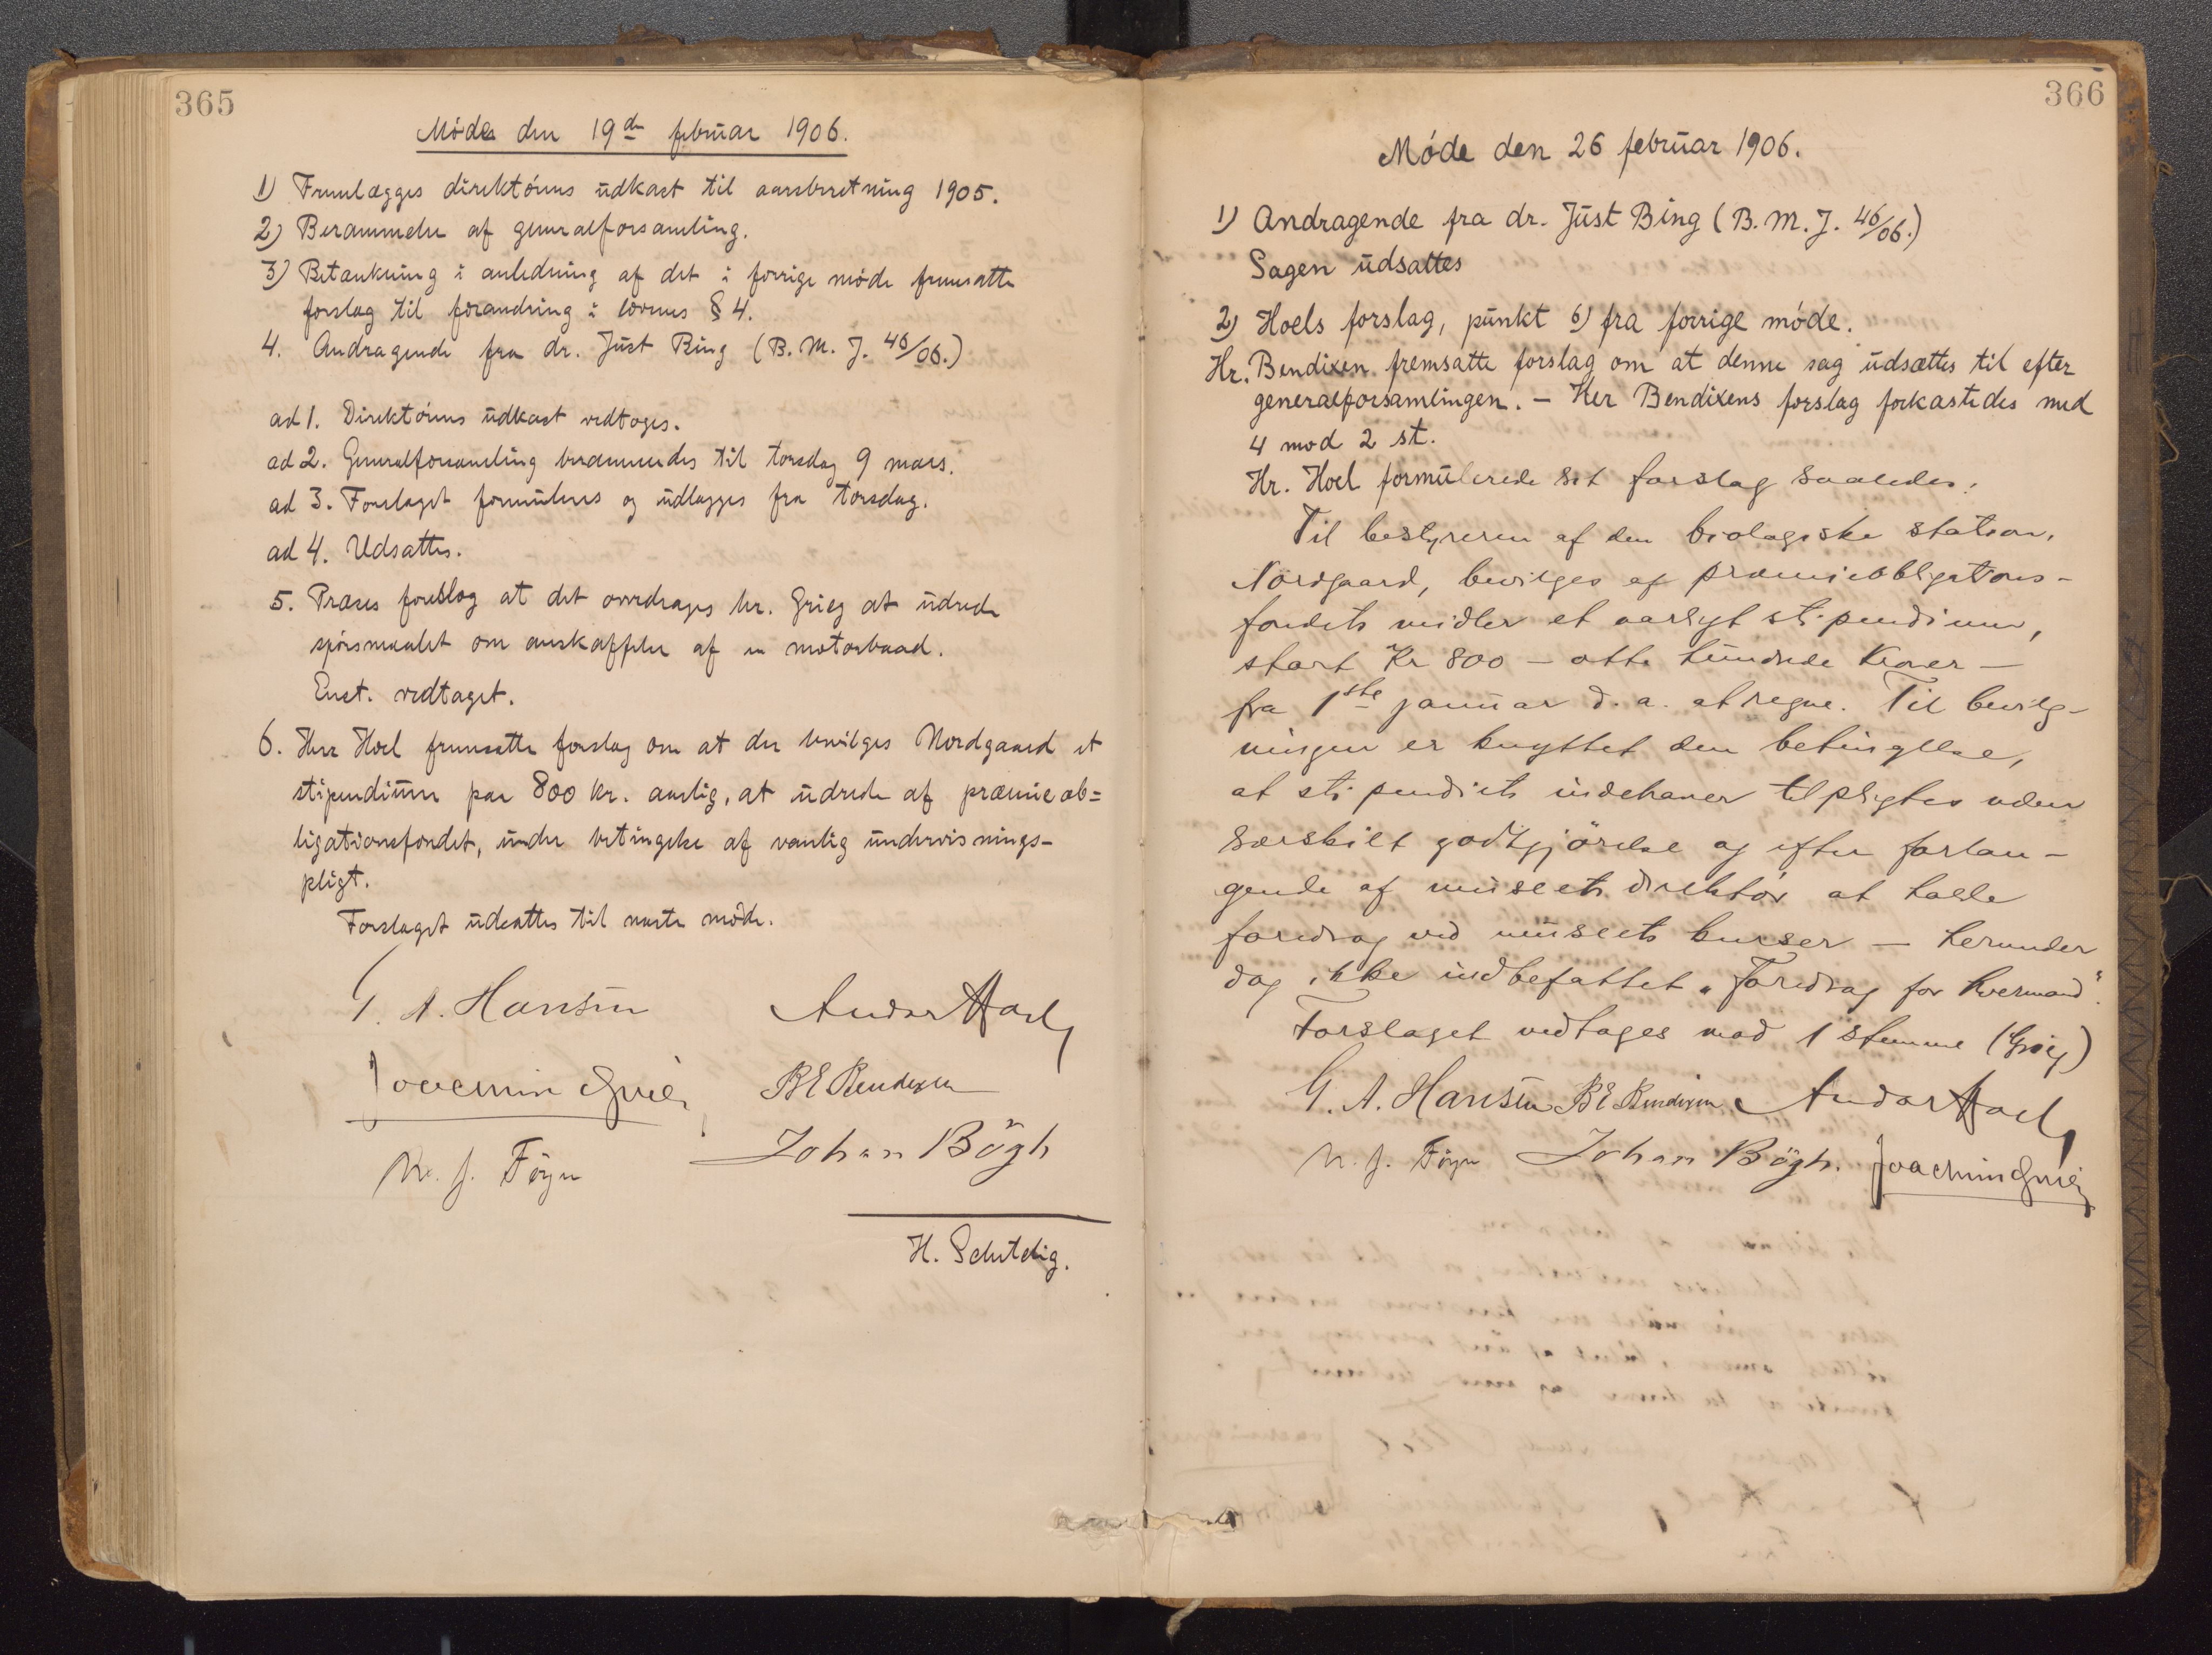 365
Møde den 19de februar 1906.
1) Fremlægges direktørens udkast til aarsberetning 1905.
2) Berammelse af generalforsamling.
3) Betænkning i anledning af det i forrige møde fremsatte
forslag til forandring i lovenes § 4.
4. Andragende fra dr. Just Bing (B. M. J. 46/06.)
ad 1. Direktørens udkast vedtoges.
ad 2. Generalforsamling berammedes til torsdag 9 mars.
ad 3. Forslaget formuleres og udlægges fra torsdag.
ad 4. Udsattes.
5. Præses foreslog at det overdrages hr. Grieg at udrede
spørsmaalet om anskaffelse af en motorbaad.
Enst. vedtaget.
6. Herr Hoel fremsatte forslag om at der bevilges Nordgaard et
stipendium paa 800 kr. aarlig, at udrede af præmieob=
ligationsfondet, under betingelse af vanlig undervisnings-
pligt.
Forslaget udsattes til næste møde.
G. A. Hansen Andor Hoel
Joachim Grieg B E Bendixen
M. J. Föyn Johan Bögh
H. Schetelig.
366
Møde den 26 februar 1906.
1) Andragende fra dr. Just Bing (B. M. J. 46/06.)
Sagen udsattes
2) Hoels forslag, punkt 6) fra forrige møde.
Hr. Bendixen fremsatte forslag om at denne sag udsættes til efter
generalforsamlingen. – Her Bendixens forslag forkastedes med
4 mod 2 st.
Hr. Hoel formulerede sit forslag saaledes:
Til bestyreren af den biologiske station,
Nordgaard, bevilges af præmieobligations-
fondets midler et aarligt stipendium,
stort Kr 800 – otte hundrede Kroner –
fra 1ste januar d. a. at regne. Til bevilg-
ningen er knyttet den betingelse,
at stipendiets indehaver tilpligtes uden
særskilt godtgjörelse og efter forlan-
gende af museets direktör at holde
foredrag ved museets kurser – herunder
dog ikke indbefattet „Foredrag for hvermand“.
Forslaget vedtoges mod 1 stemme (Grieg)
G. A. Hansen B E Bendixen Andor Hoel
M. J. Föyn Johan Bögh. Joachim Grieg